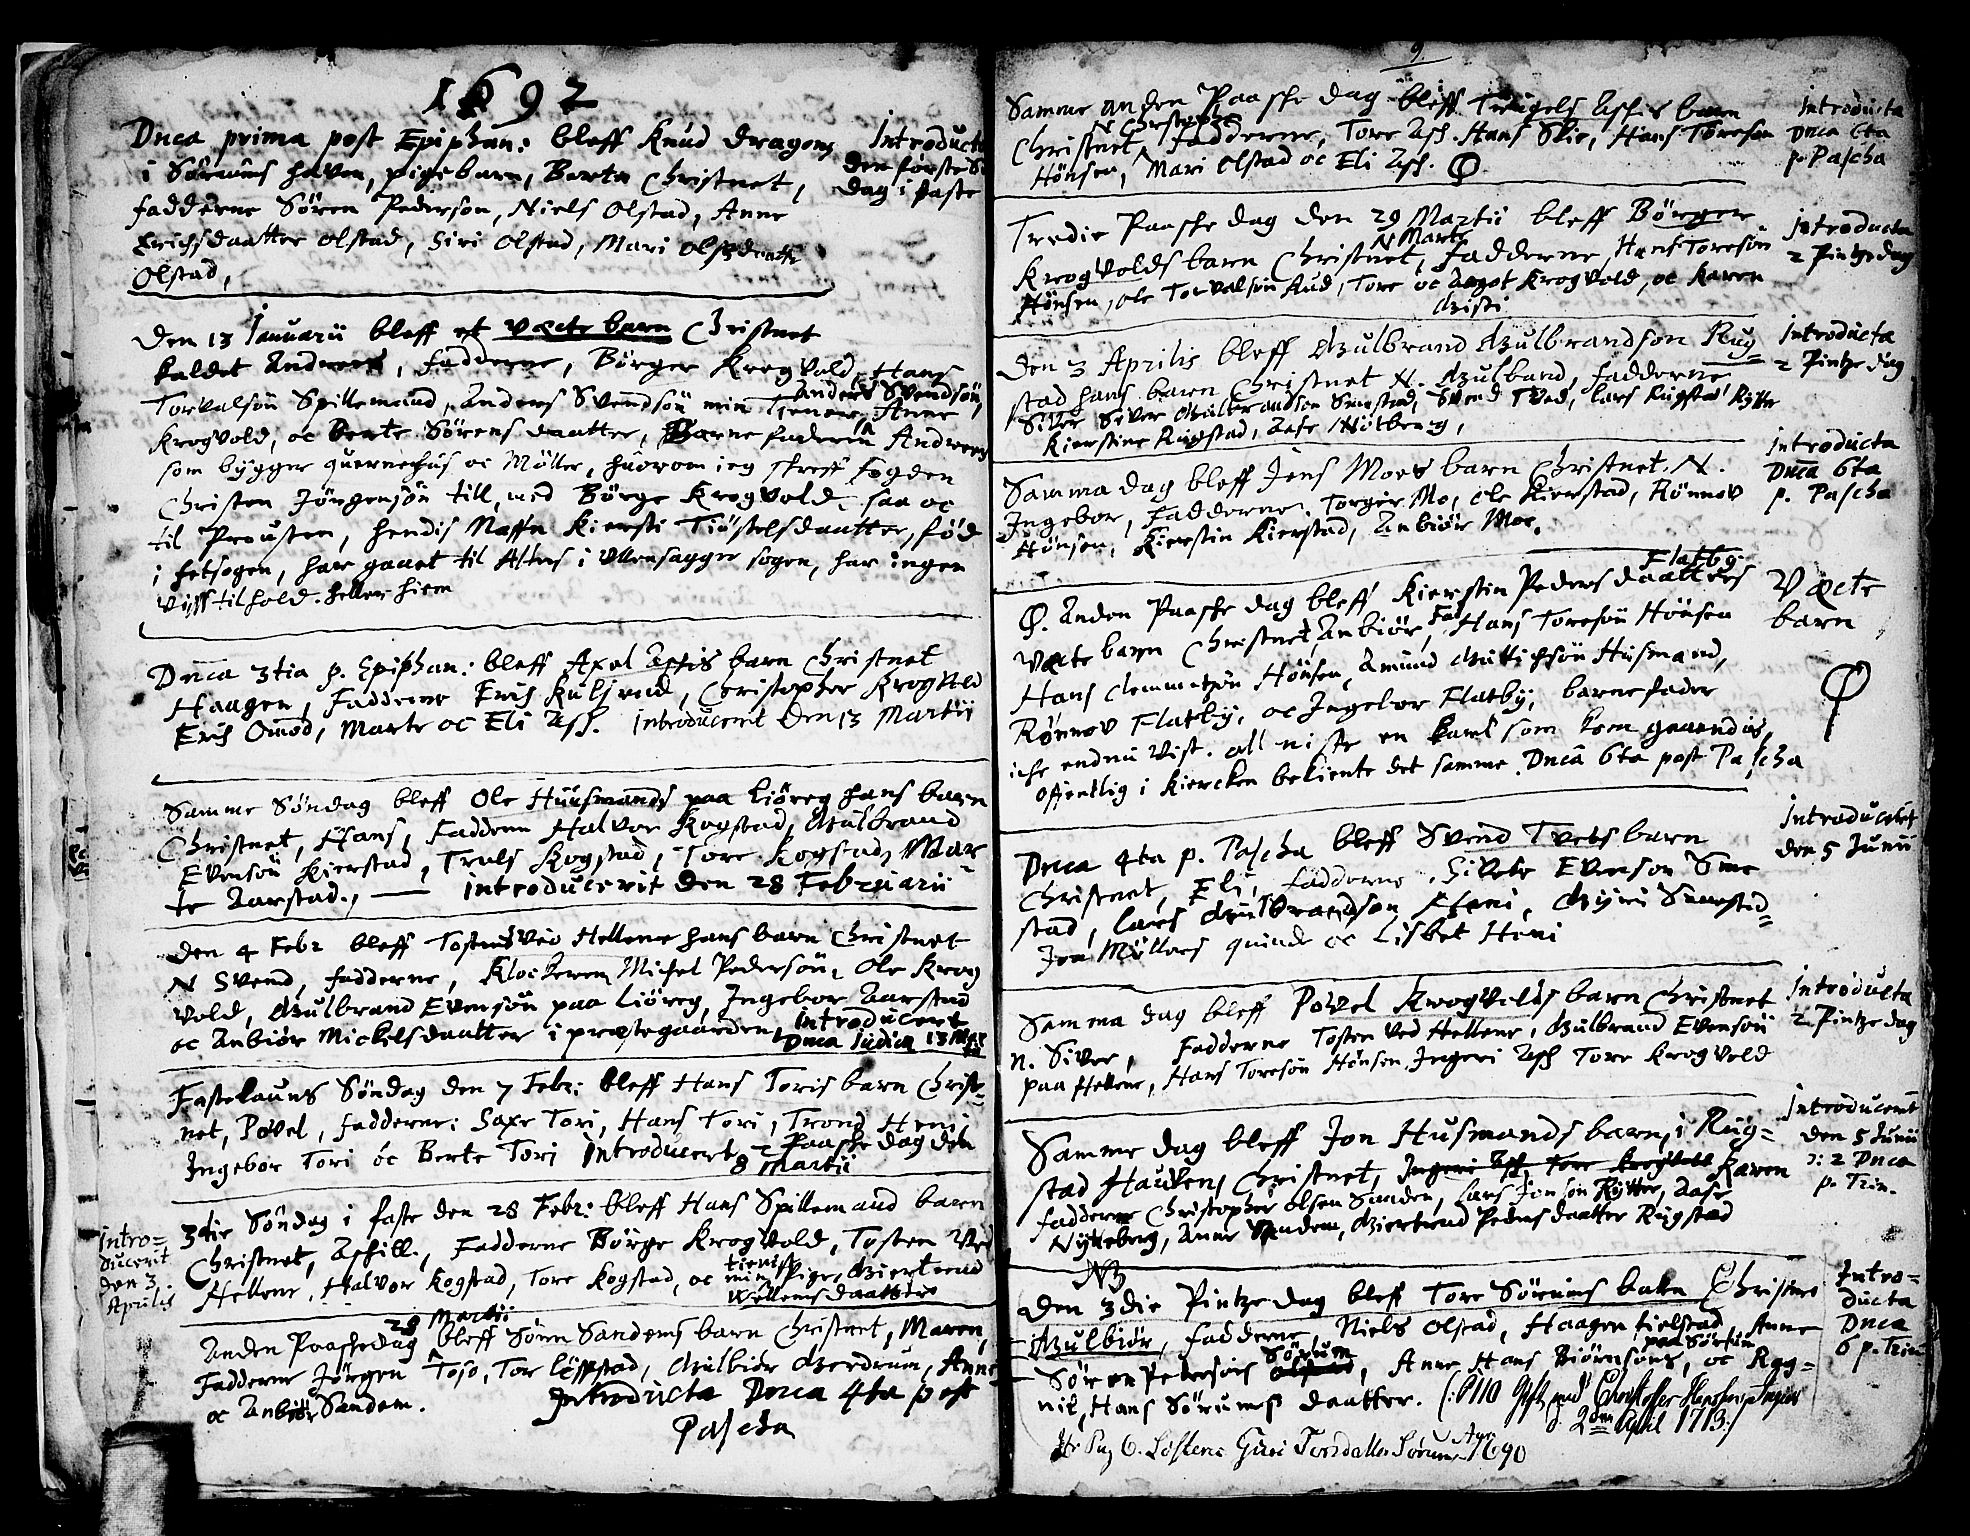 1692
Dnca prima post Epiphan: bleff Knud dragons
i Sørums haven, pigebarn, Berta Christnet,
fadderne Søren Pedersøn, Niels Olstad, Anne
Erichsdaatter Olstad, Siri Olstad, Mari Olsdaatter
Olstad,
Introducta
den første Søn
dag i faste
Den 13 Januarii bleff et væcte barn Christnet
kaldet Anders, fadderne, Børger Krogvold, Hans
Torvalsøn Spillemand, Anders Svendsøn min Tiener, Anne
Anders Svendsøn,
Krogvold, oc Berte Sørens daatter, Barnefaderen Andreas
som bygger quernehus oc Møller, huorom ieg skreff fogden
Christen Jørgensøn till, med Børge Krogvold, saa oc
til Prousten, hendis Naffn Kiersti Tiøstelsdaatter, fød
i fetsogen, har gaaet til Alters i Ullensagger sogen, har ingen
visstilhold heller hiem
Dnca 3tia p. Epiphan: bleff Axel Askis barn Christnet
Haagen, Fadderne Erich Kulsrud, Christopher Krogvold
Erich Omod, Marte oc Eli Ask. introducerit den 13 Martii
Samme Søndag bleff Ole Huusmands paa Liøreg hans barn
Christnet, Hans, Faddern Halvor Kogstad, Gulbrand
Evensøn Kierstad, Truls Kogstad, Tore Kogstad, Mar-
te Aarstad., — introducerit den 28 Februarii
Den 4 Febr bleff Tostens ved Hellene hans barn Christnet
N Svend, fadderne, Klockeren Michel Pedersøn, Ole Krog
vold, Gulbrand Evensøn paa Liøreg, Ingebor Aarstad
oc Anbiør Mickelsdaatter i præstegaarden, introducert
Dnca Judica 13 Mar
tii
Fastelauns Søndag den 7 Febr: bleff Hans Toris barn Christ-
net, Povel, fadderne: Saxe Tori, Hans Tori, Trond Heni
Ingebor Tori oc Berte Tori Introducert 2 Paaske dag den
8 Martii
3die Søndag i faste den 28 Febr: bleff Hans Spillemand barn
Christnet, Askill., Fadderne Børge Krogvold, Tosten Ved
Hellene, Halvor Kogstad, Tore Kogstad, oc min tieniste Pige Giertrud
Wellemsdaatter
Intro-
ducerit
den 3
Aprilis
28 Martii
Anden Paaskedag bleff Sören Sandems barn Christnet, Maren,
Fadderne Jørgen Toso, Tor Løffstad, Gulbiør Gierdrum, Anne
oc Anbiør Sandem. Introducta Dnca 4ta post
Pascha
9.
Samme anden Paaske dag bleff Trugels Askis barn
N Christopher
Christnet, Fadderne, Tore Ask. Hans Skie, Hans Toresøn
Hønsen, Mari Olstad oc Eli Ask.
Introducta
Dnca 6ta
p. Pascha
Tredie Paaske dag den 29 Martii bleff Børger
N Marte
Krogvolds barn Christnet, Fadderne Hans Toresøn
Hønsen, Ole Torvalsøn Aud, Tore oc Aagot Krogvold, oc Karen
Gisti
introducta
2 Pintzedag
Den 3 Aprilis bleff Gulbrand Gulbrandsøn Rug-
stad hans barn Christnet N. Gulbrand, Fadderne
Siver Siver Gulbrandsøn Smestad, Svend Tved, Lars Rugstad Rytter
Kierstine Rugstad, Aase Nøtberg,
Introducta
2 Pintze dag
Samma dag bleff Jens Moes barn Christnet N.
Ingebor, Fadderne. Torger Mo, Ole Kierstad, Rønnov
Hønsen, Kierstin Kierstad, Anbiør Moe.
introducta
Dnca 6ta
p. Pascha
Flatby
Anden Paaske dag bleff Kierstin Pedersdaatters
Væcte barn Christnet, Anbiør, Fad. Hans Toresøn Hønsen
Hans Clemmetsøn Hønsen, Amund Gullichsøn Husmand,
Rønnov Flatby, oc Ingebor Flatby, barnefader
iche endnu vist. all niste en karl som kom gaaendis,
offentlig i kiercken bekiente det samme. Dnca 6ta post Pascha
Væcte
barn
Dnca 4ta p. Pascha bleff Svend Tvets barn
Christnet, Eli, Fadderne. Siver Evensøn Sme
stad, Lars Gulbrandsøn Heni, Gyri Smestad-
Jon Møllers quinde oc Lisbet Heni
Introducerit
den 5 Junii
Samma dag bleff Povel Krogvolds barn Christnet
n. Siver, Fadderne Tosten ved Hellene, Gulbrand Evensøn
paa Hellene, Hans Toresøn Hønsen, Ingeri Ask Tore Krogvold
Introducta
2 Pintze dag
Samme dag bleff Jon Husmands barn, i Rug-
stad Hauken, Christnet, Ingeri Ask, Tore Krogvold Karen
fadderne Christopher Olsen Sanden, Lars Jonsøn Rytter, Aase
Nytteberg, Anne Sandem, Giertrud Pedersdaatter Rugstad
Introducerit
den 5 Junii
ɔ: 2 Dnca
p. Trin.
NB
Den 3die Pintze dag bleff Tore Sørums barn Christnet
Gulbiør, Fadderne, Niels Olstad, Haagen Fielstad, Anne
Søren Pedersøns Sørum, Anne Hans Biørnsøns paa Sørum, oc Rag-
nil, Hans Sørums daatter.
2den April 1713:/
1690
Intro-
ducta
Dnca
6 p. Trin